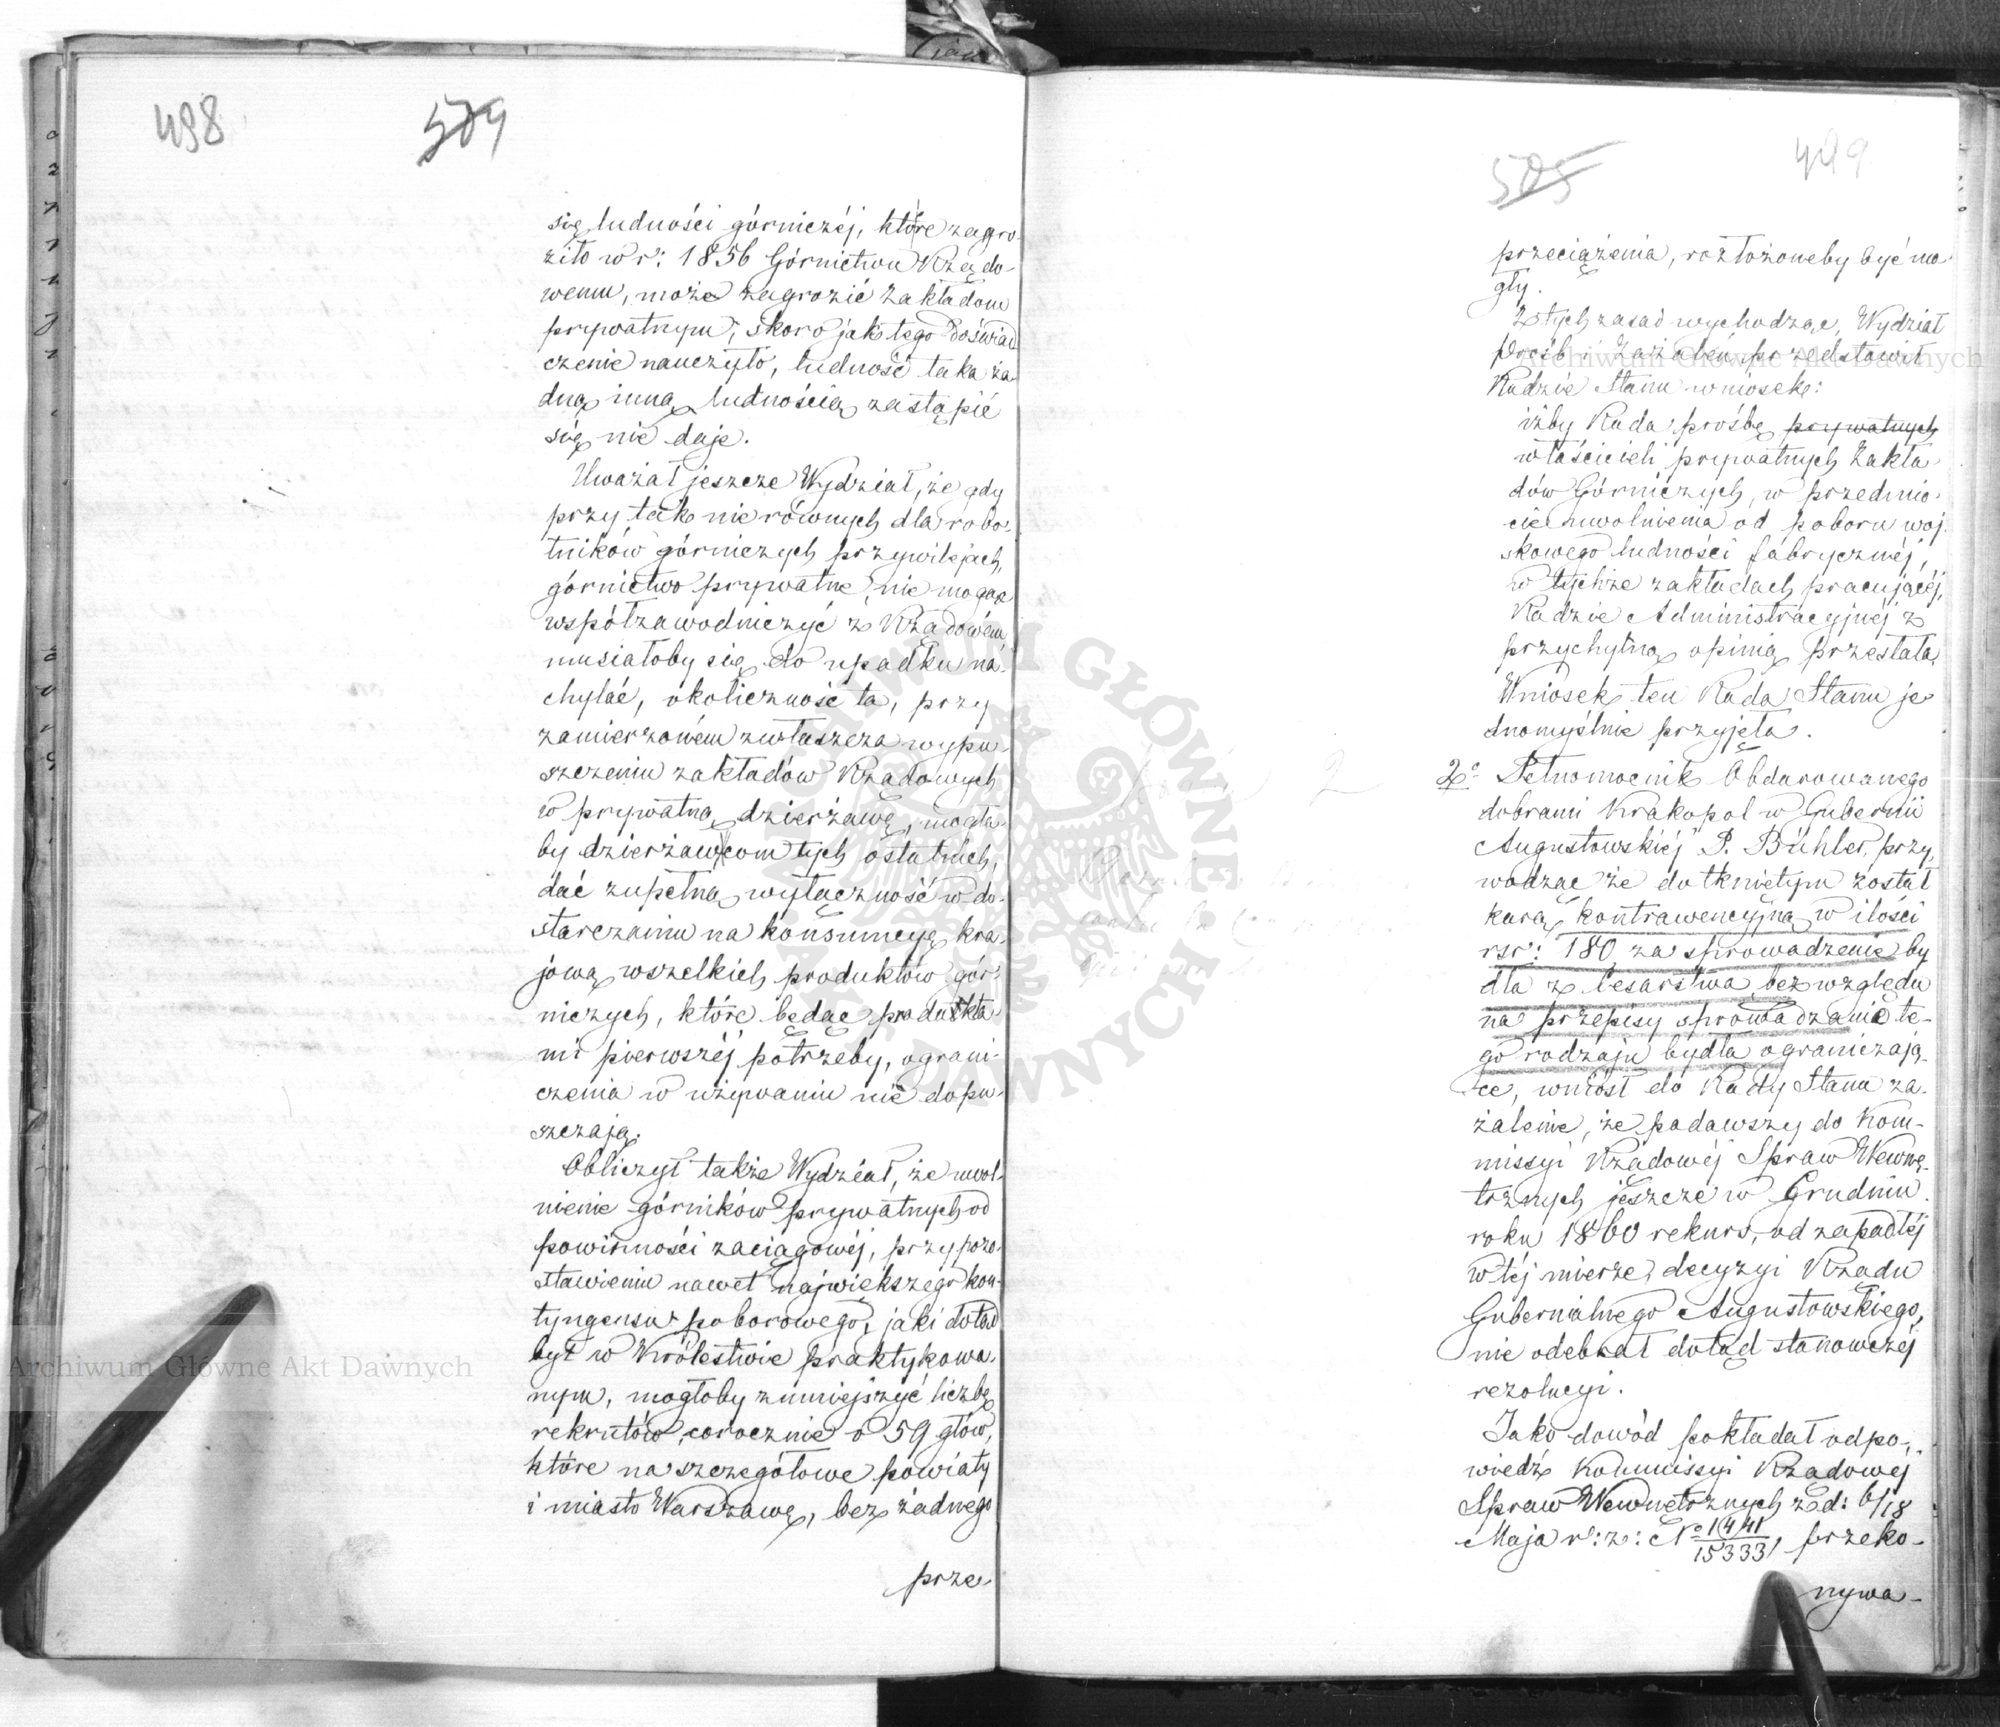 498
504
się ludności górniczéj, które zagro-
ziło w r: 1856 Górnictwu Rządo-
wemu, może zagrozić Zakładom
prywatnym, skoro jak tego doświad
czenie nauczyło, ludność taka ża-
dną inną ludnością zastąpić
się nie daje.
Uważał jeszcze Wydział, że gdy
przy tak nierównych dla robo-
tników górniczych przywilejach,
górnictwo prywatne, nie mogąc
współzawodniczyć z Rządowém
musiałoby się do upadku na-
chylać, okoliczność ta, przy
zamierzoném zwłaszcza wypu-
szczeniu zakładów Rządowych
w prywatną dzierżawę, mogła-
by dzierżawcom tych ostatnich,
dać zupełną wyłączność w do-
starczaniu na konsumcyę kra-
jową wszelkich produktów gór-
niczych, które będąc produkta-
mi pierwszéj potrzeby, ograni-
czenia w używaniu nie dopu-
szczają.
Obliczył także Wydział, że uwol-
nienie górników prywatnych od
powinności zaciągowéj, przy pozo-
stawieniu nawet największego kon-
tyngensu poborowego, jaki dotąd
był w Królestwie praktykowa-
nym, mogłoby zmniejszyć liczbę
rekrutów corocznie o 59 głów,
które na szczegółowe powiaty
i miasto Warszawę, bez żadnego
prze-
505
499
przeciążenia, rozłożoneby być mo-
gły.
Z tych zasad wychodząc, Wydział
Próśb i Zażaleń przedstawił
Radzie Stanu wniosek:
iżby Rada prośbę prywatnych
właścicieli prywatnych Zakła-
dów Górniczych, w przedmio-
cie uwolnienia od poboru woj-
skowego ludności fabrycznéj,
w tychże zakładach pracującéj,
Radzie Administracyjnéj z
przychylną opinią przesłała.
Wniosek ten Rada Stanu je-
dnomyślnie przyjęła.
2o Pełnomocnik Obdarowanego
dobrami Krakopol w Gubernii
Augustowskiéj P. Bühler, przy-
wodząc że dotkniętym został
karą kontrawencyjną w ilości
rsr: 180 za sprowadzenie by
dła z Cesarstwa bez względu
na przepisy sprowadzanie te-
go rodzaju bydła ograniczają-
ce, wniósł do Rady Stanu za-
żalenie, że podawszy do Kom-
missyi Rządowéj Spraw Wewnę-
trznych jeszcze w Grudniu
roku 1860 rekurs, od zapadłéj
w téj mierze decyzyi Rządu
Gubernialnego Augustowskiego,
nie odebrał dotąd stanowczéj
rezolucyi.
Jako dowód pokładał odpo-
wiedź Kommissyi Rządowéj
Spraw Wewnętrznych z d: 6/18
Maja r: z: No 1441/15333, przeko-
nywa-
Archiwum Główne Akt Dawnych
Archiwum Główne Akt Dawnych
ARCHIWUM GŁÓWNE AKT DAWNYCH